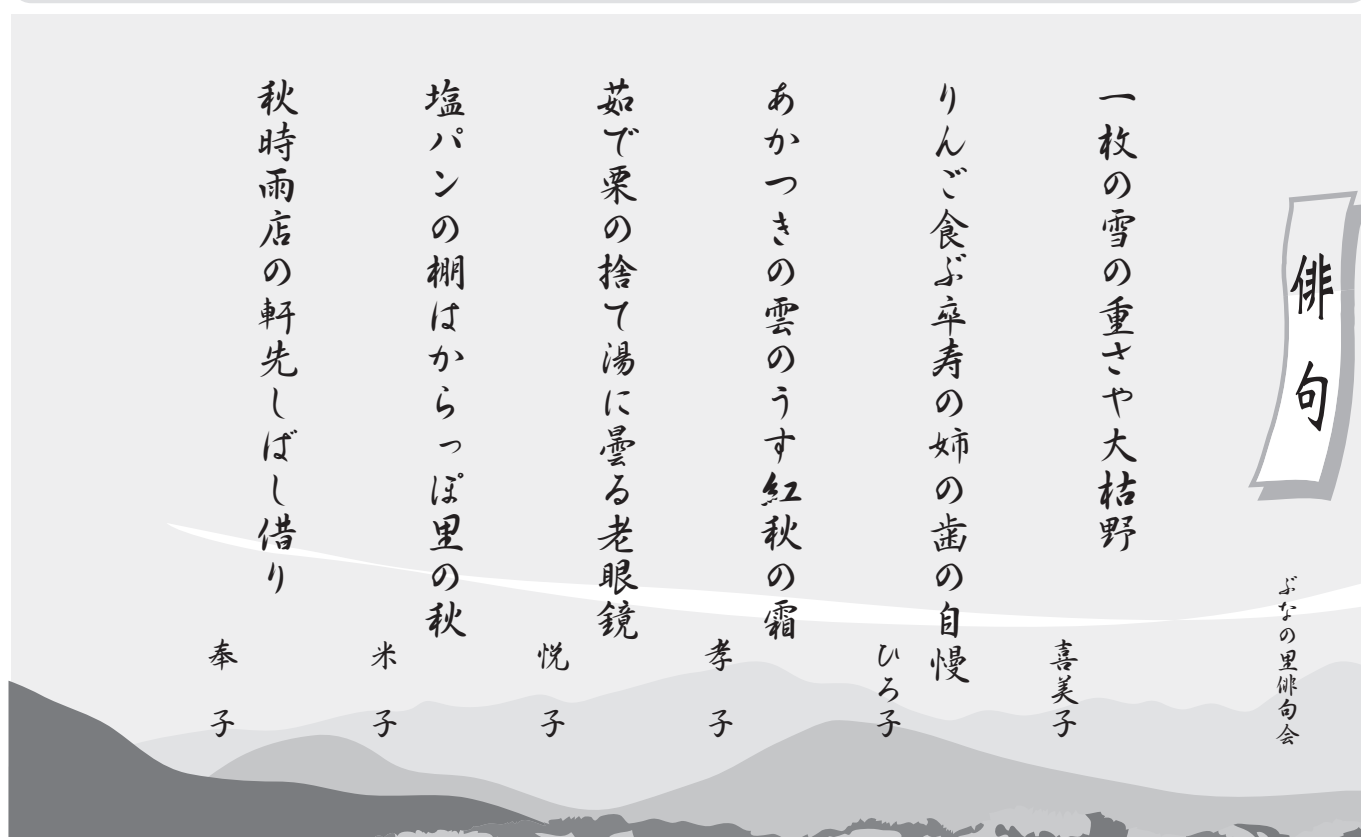 俳句
ぶなの里俳句会
一枚の雪の重さや大枯野
喜美子
りんご食ぶ卒寿の姉の歯の自慢
ひろ子
あかつきの雲のうす紅秋の霜
孝子
茹で栗の捨て湯に曇る老眼鏡
悦子
塩パンの棚はからっぽ里の秋
米子
秋時雨店の軒先しばし借り
奉子